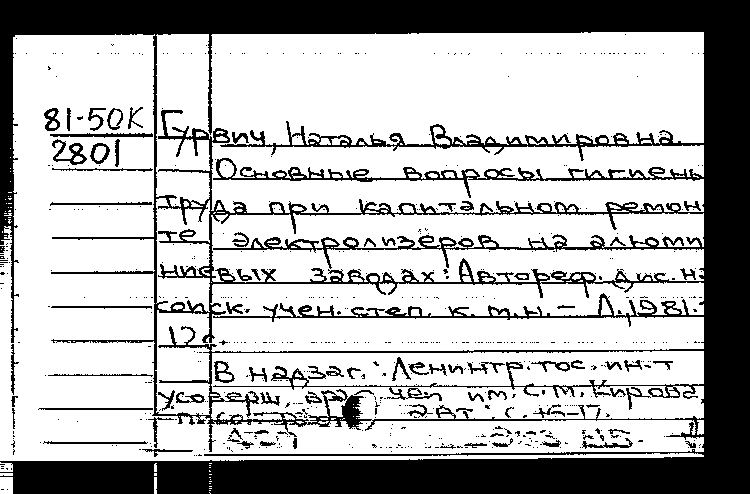 81-50К Гурвич, Наталья Владимировна.
2801 Основные вопросы гигиены
труда при капитальном ремон-
те электролизеров на алюми-
ниевых заводах: Автореф. дис. на
соиск. учен. степ. к. м. н. – Л., 1981. –
12 с.
В надзаг.: Ленингр. гос. ин-т
усоверш. врачей им. С. М. Кирова,
с. 16-17.